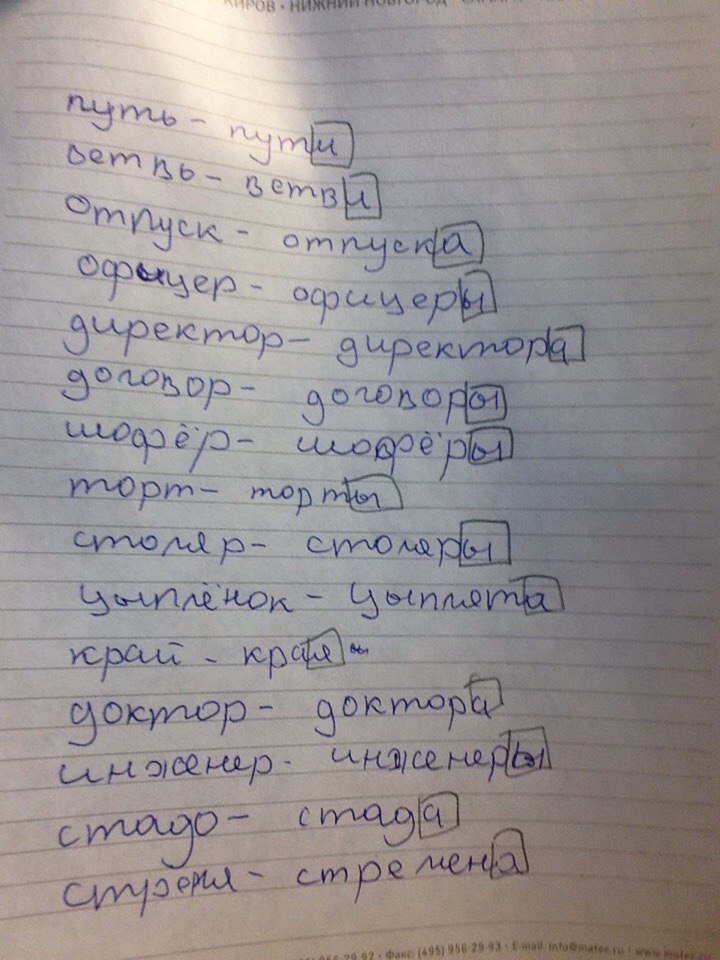 КИРОВ • НИЖНИЙ НОВГОРОД
путь - пути
ветвь - ветви
отпуск - отпуска
офицер - офицеры
директор - директора
договор - договоры
шофёр - шофёры
торт - торты
столяр - столяры
цыплёнок - цыплята
край - края
доктор - доктора
инженер - инженеры
стадо - стада
стремя - стремена
956-29-92 • Факс: (495) 956-29-93 • E-mail: info@matec.ru • www.matec.ru